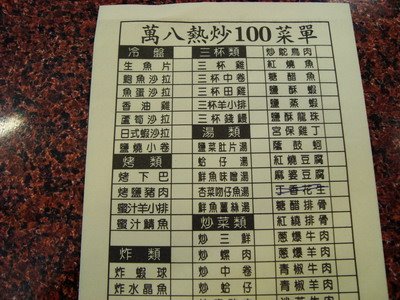 萬八熱炒100菜單
冷盤
生魚片
鮑魚沙拉
魚蛋沙拉
香油雞
蘆筍沙拉
日式蝦沙拉
鹽燒小卷
烤類
烤下巴
烤鹽豬肉
蜜汁羊小排
蜜汁鯖魚
炸類
炸蝦球
炸水晶魚
三杯類
三杯雞
三杯中卷
三杯田雞
三杯羊小排
三杯錢鰻
湯類
鹽菜肚片湯
蛤仔湯
鮮魚味噌湯
杏菜吻仔魚湯
鮮魚薑絲湯
炒菜類
炒三鮮
炒螺肉
炒中卷
炒蛤仔
炒鴕鳥肉
紅燒魚
糖醋魚
鹽酥蝦
鹽蒸蝦
鹽酥龍珠
宮保雞丁
蔭鼓蚵
紅燒豆腐
麻婆豆腐
丁香花生
糖醋排骨
紅燒排骨
蔥爆牛肉
蔥爆羊肉
青椒牛肉
青椒羊肉